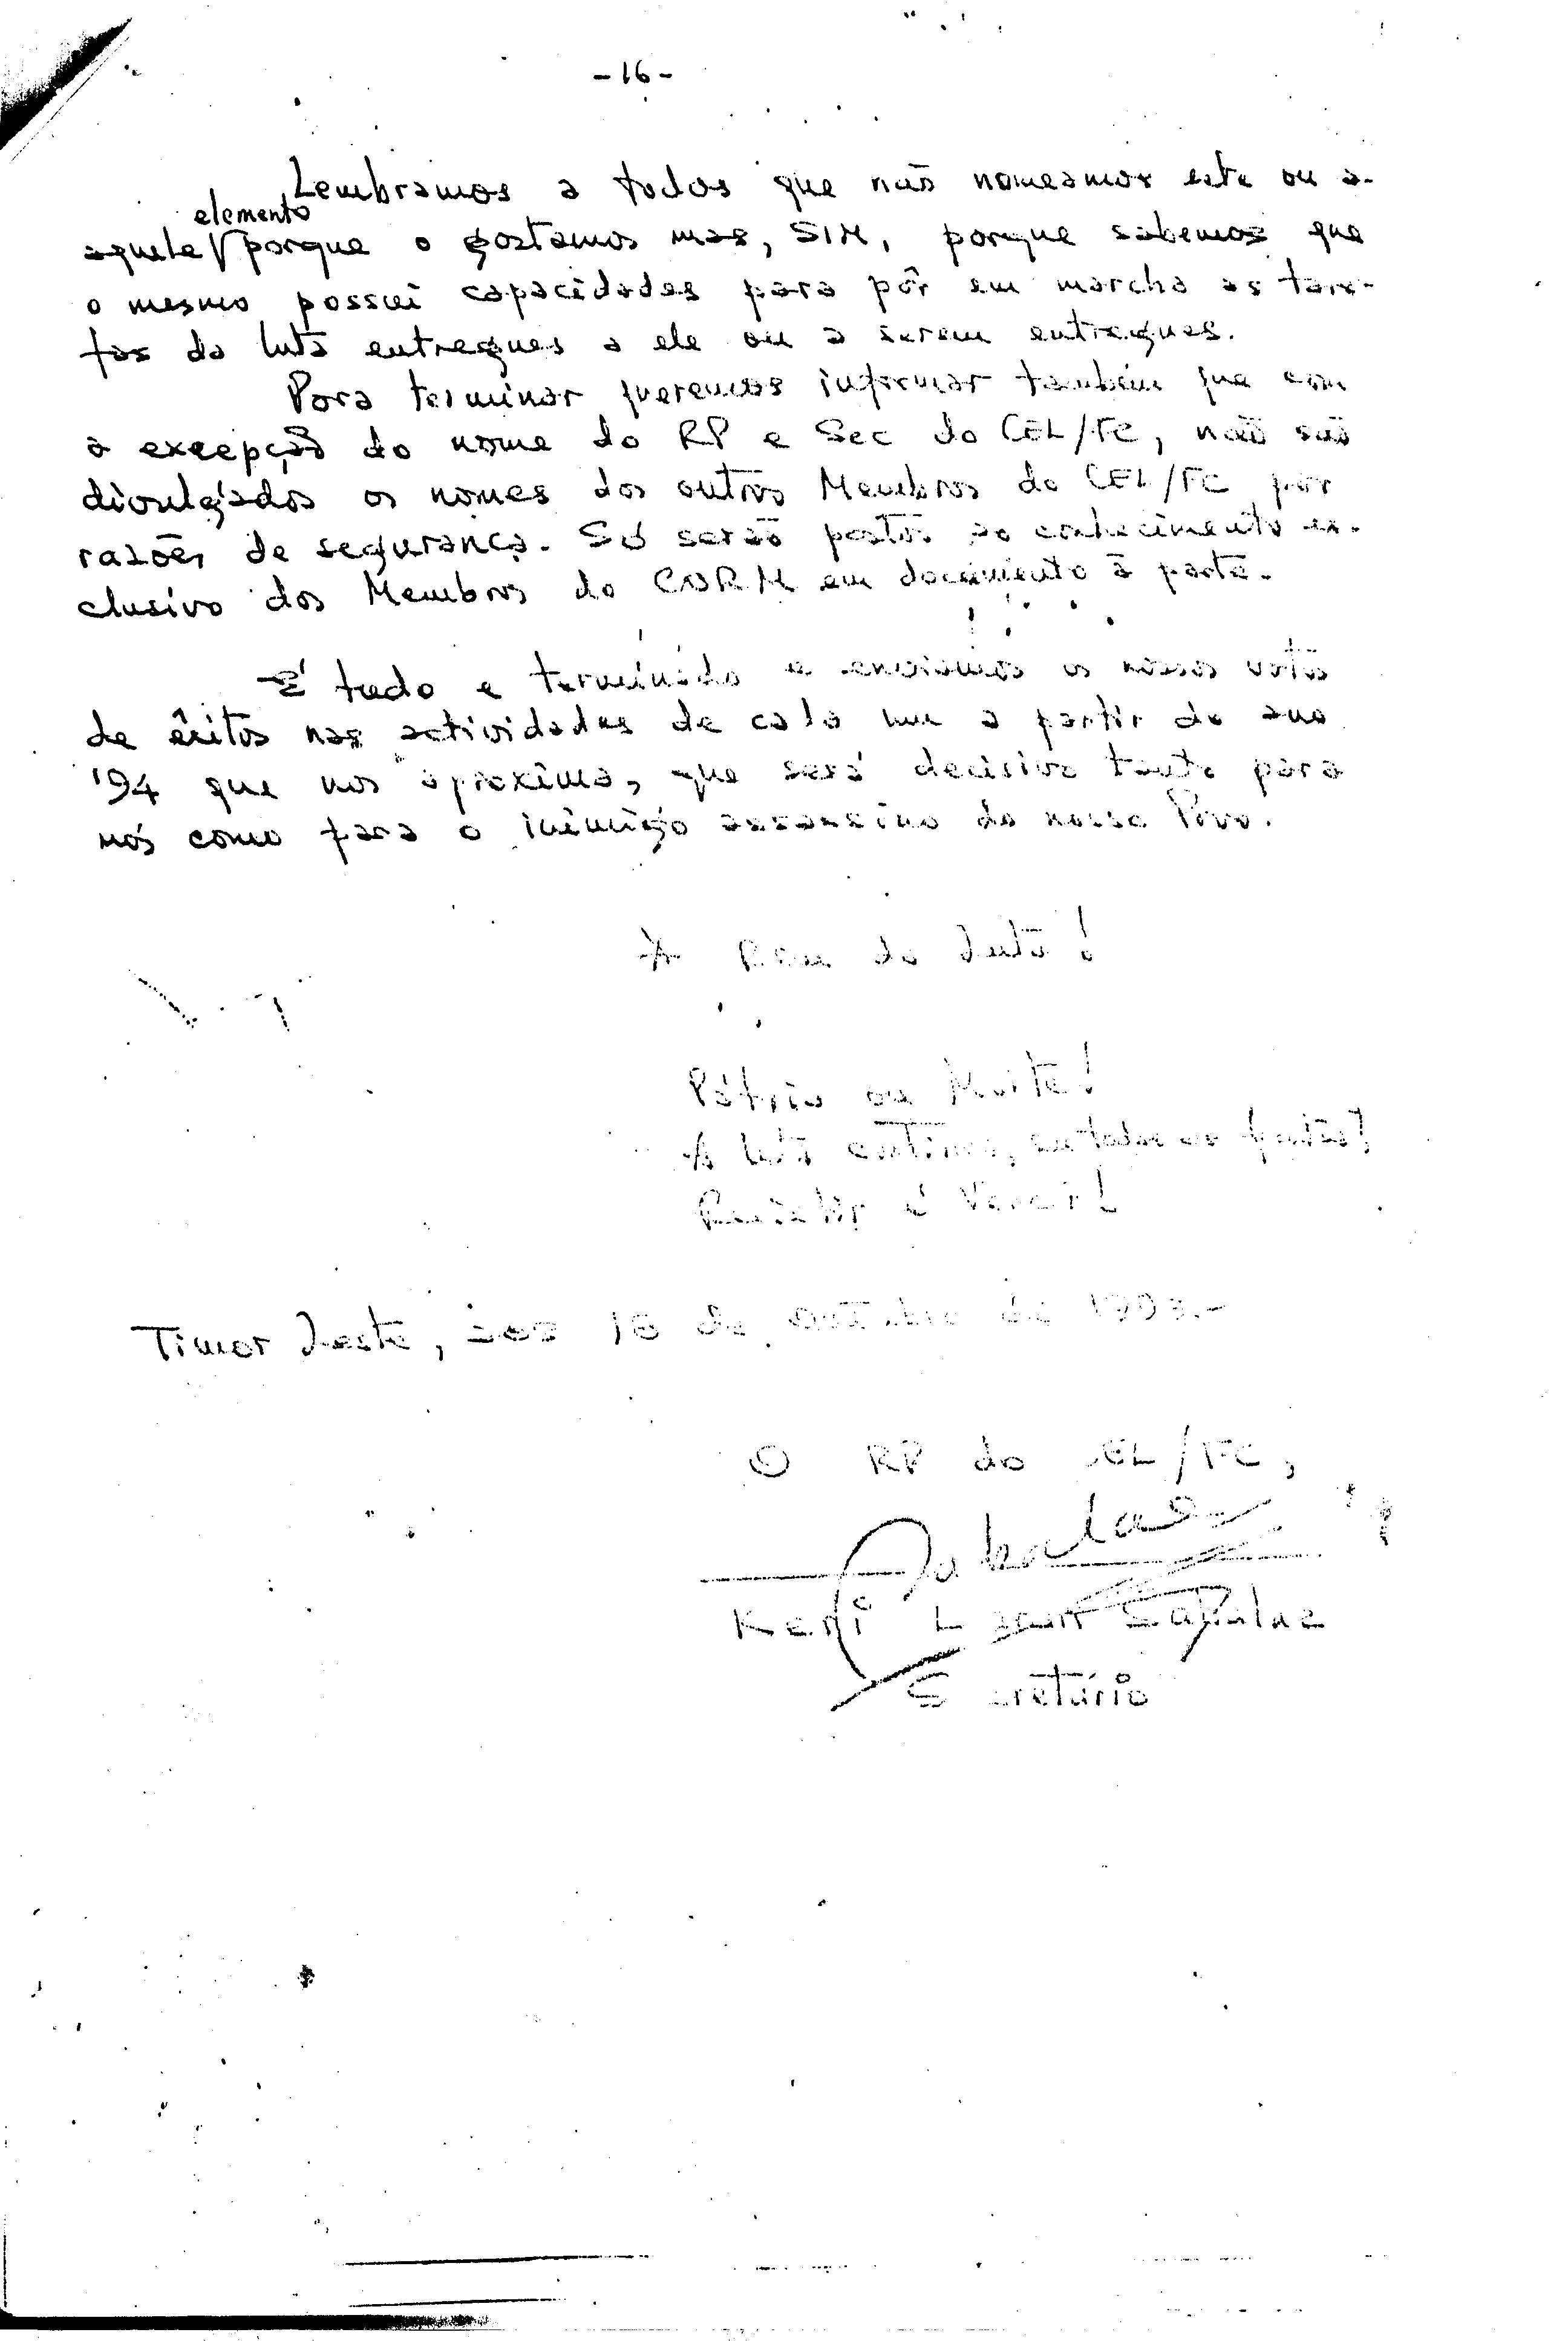 -16-
Lembramos a todos que não nomeamos este ou a-
elemento
aquele porque o gostamos mas, SIM, porque sabemos que
o mesmo possui capacidades para pôr em marcha as tare-
fas da luta entregues a ele ou a serem entregues.
Para terminar queremos informar também que com
a excepção do nome do RP e Sec do CEL/FC, não são
divulgados os nomes dos outros Membros do CEL/FC por
razões de segurança. Só serão postos ao conhecimento ex-
clusivo dos Membros do CNRM em documento à parte.
É tudo e terminado e enviamos os nossos votos
de êxitos nas actividades de cada um a partir do ano
'94 que nos aproxima, que será decisivo tanto para
nós como para o inimigo assassino do nosso Povo.
A Bem da Luta!
Pátria ou Morte!
A luta continua, em todas as frentes!
Resistir é Vencer!
Timor Leste, aos 18 de Outubro de 1993.-
O RP do CEL/FC,
Sabalae
Keri Laran Sabalae
Secretário